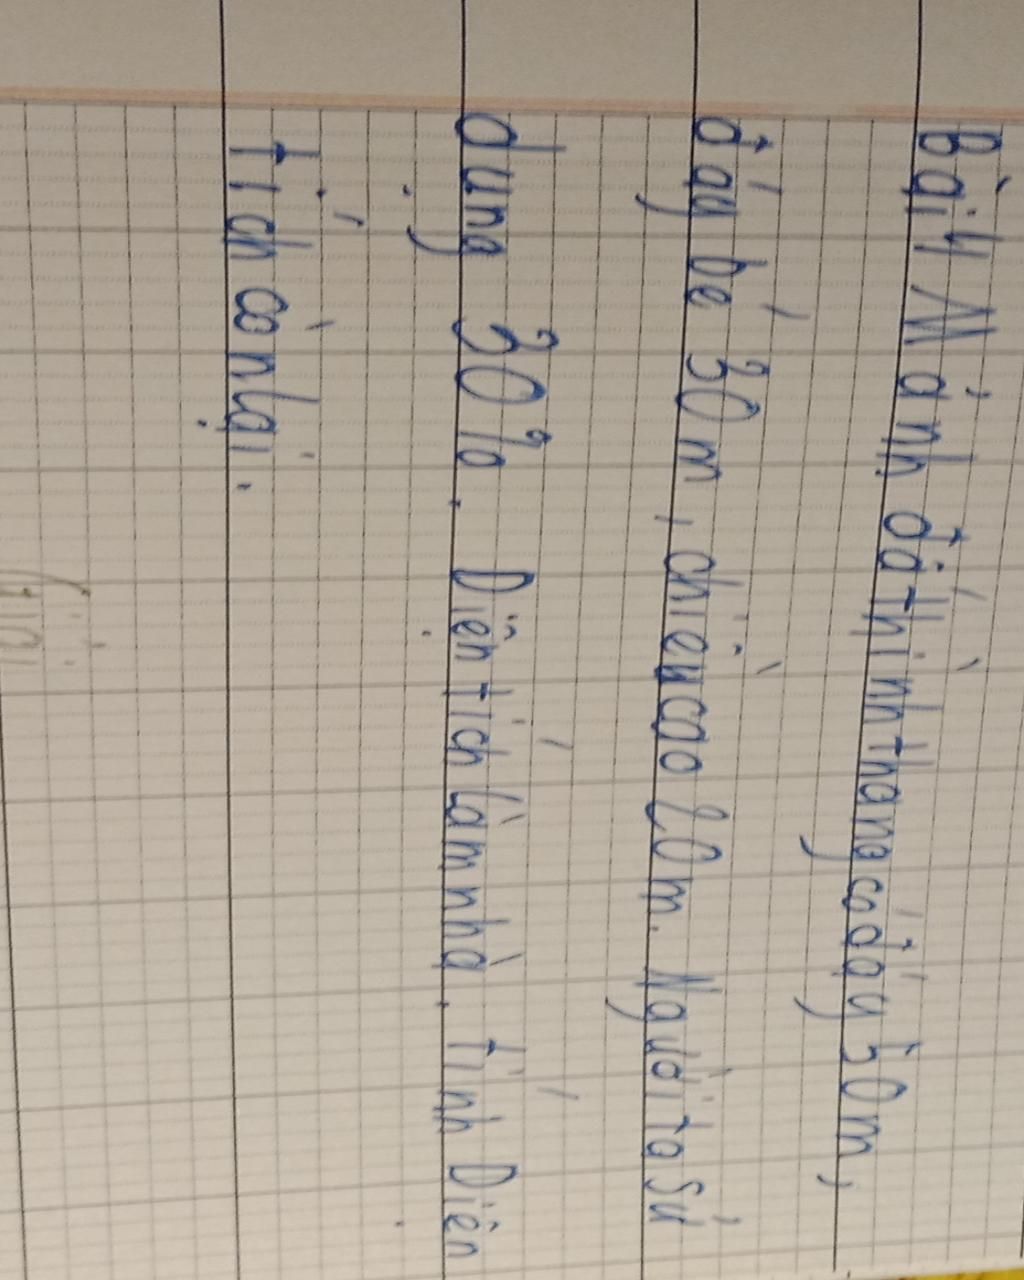 Bài 4 Mảnh đất hình thang có đáy 50m,
đáy bé 30m, chiều cao 20m. Người ta sử
dụng 30%. Diện tích làm nhà. Tính Diện
Tích cònlại.